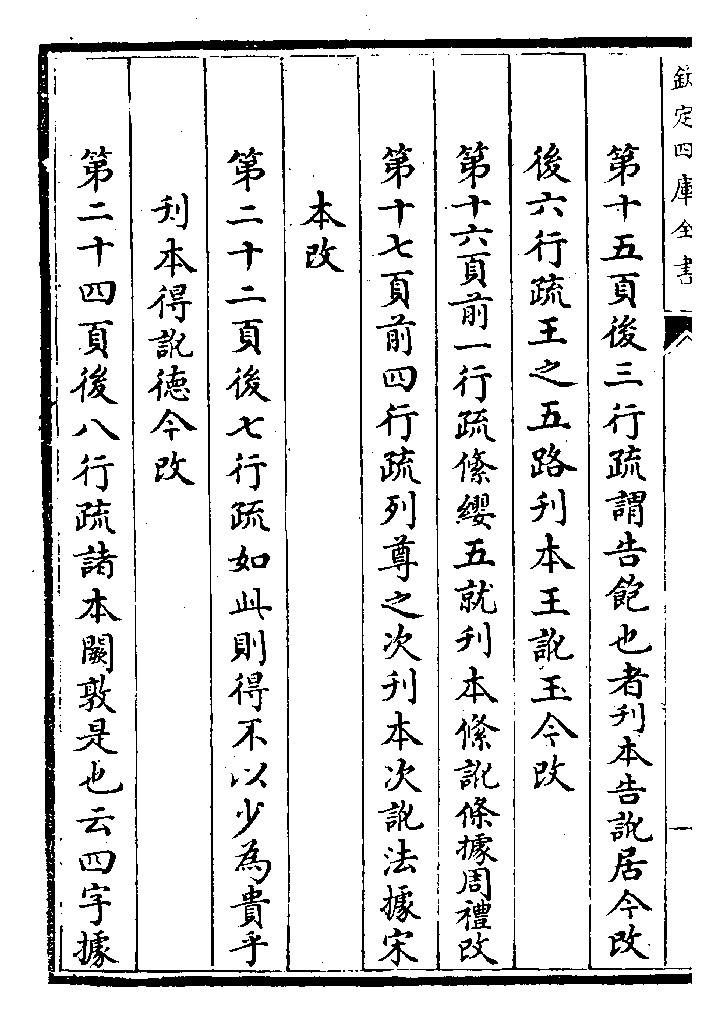 欽定四庫全書
一
第十五頁後三行疏謂告飽也者刋本告訛居今改
後六行疏王之五路刋本王訛玉今改
第十六頁前一行疏絛纓五就刋本絛訛條據周禮改
第十七頁前四行疏列尊之次刋本次訛法據宋
本改
第二十二頁後七行疏如此則得不以少為貴乎
刋本得訛德今改
第二十四頁後八行疏諸本闕敦是也云四字據